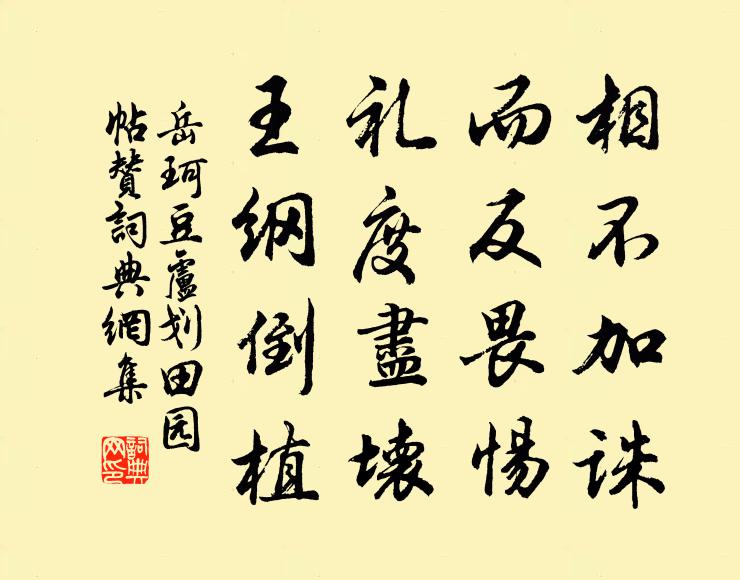 相不加誅
而反畏惕
礼度盡壊
王纲倒植
岳珂豆盧划田园
帖賛詞典網集
詞典
网印